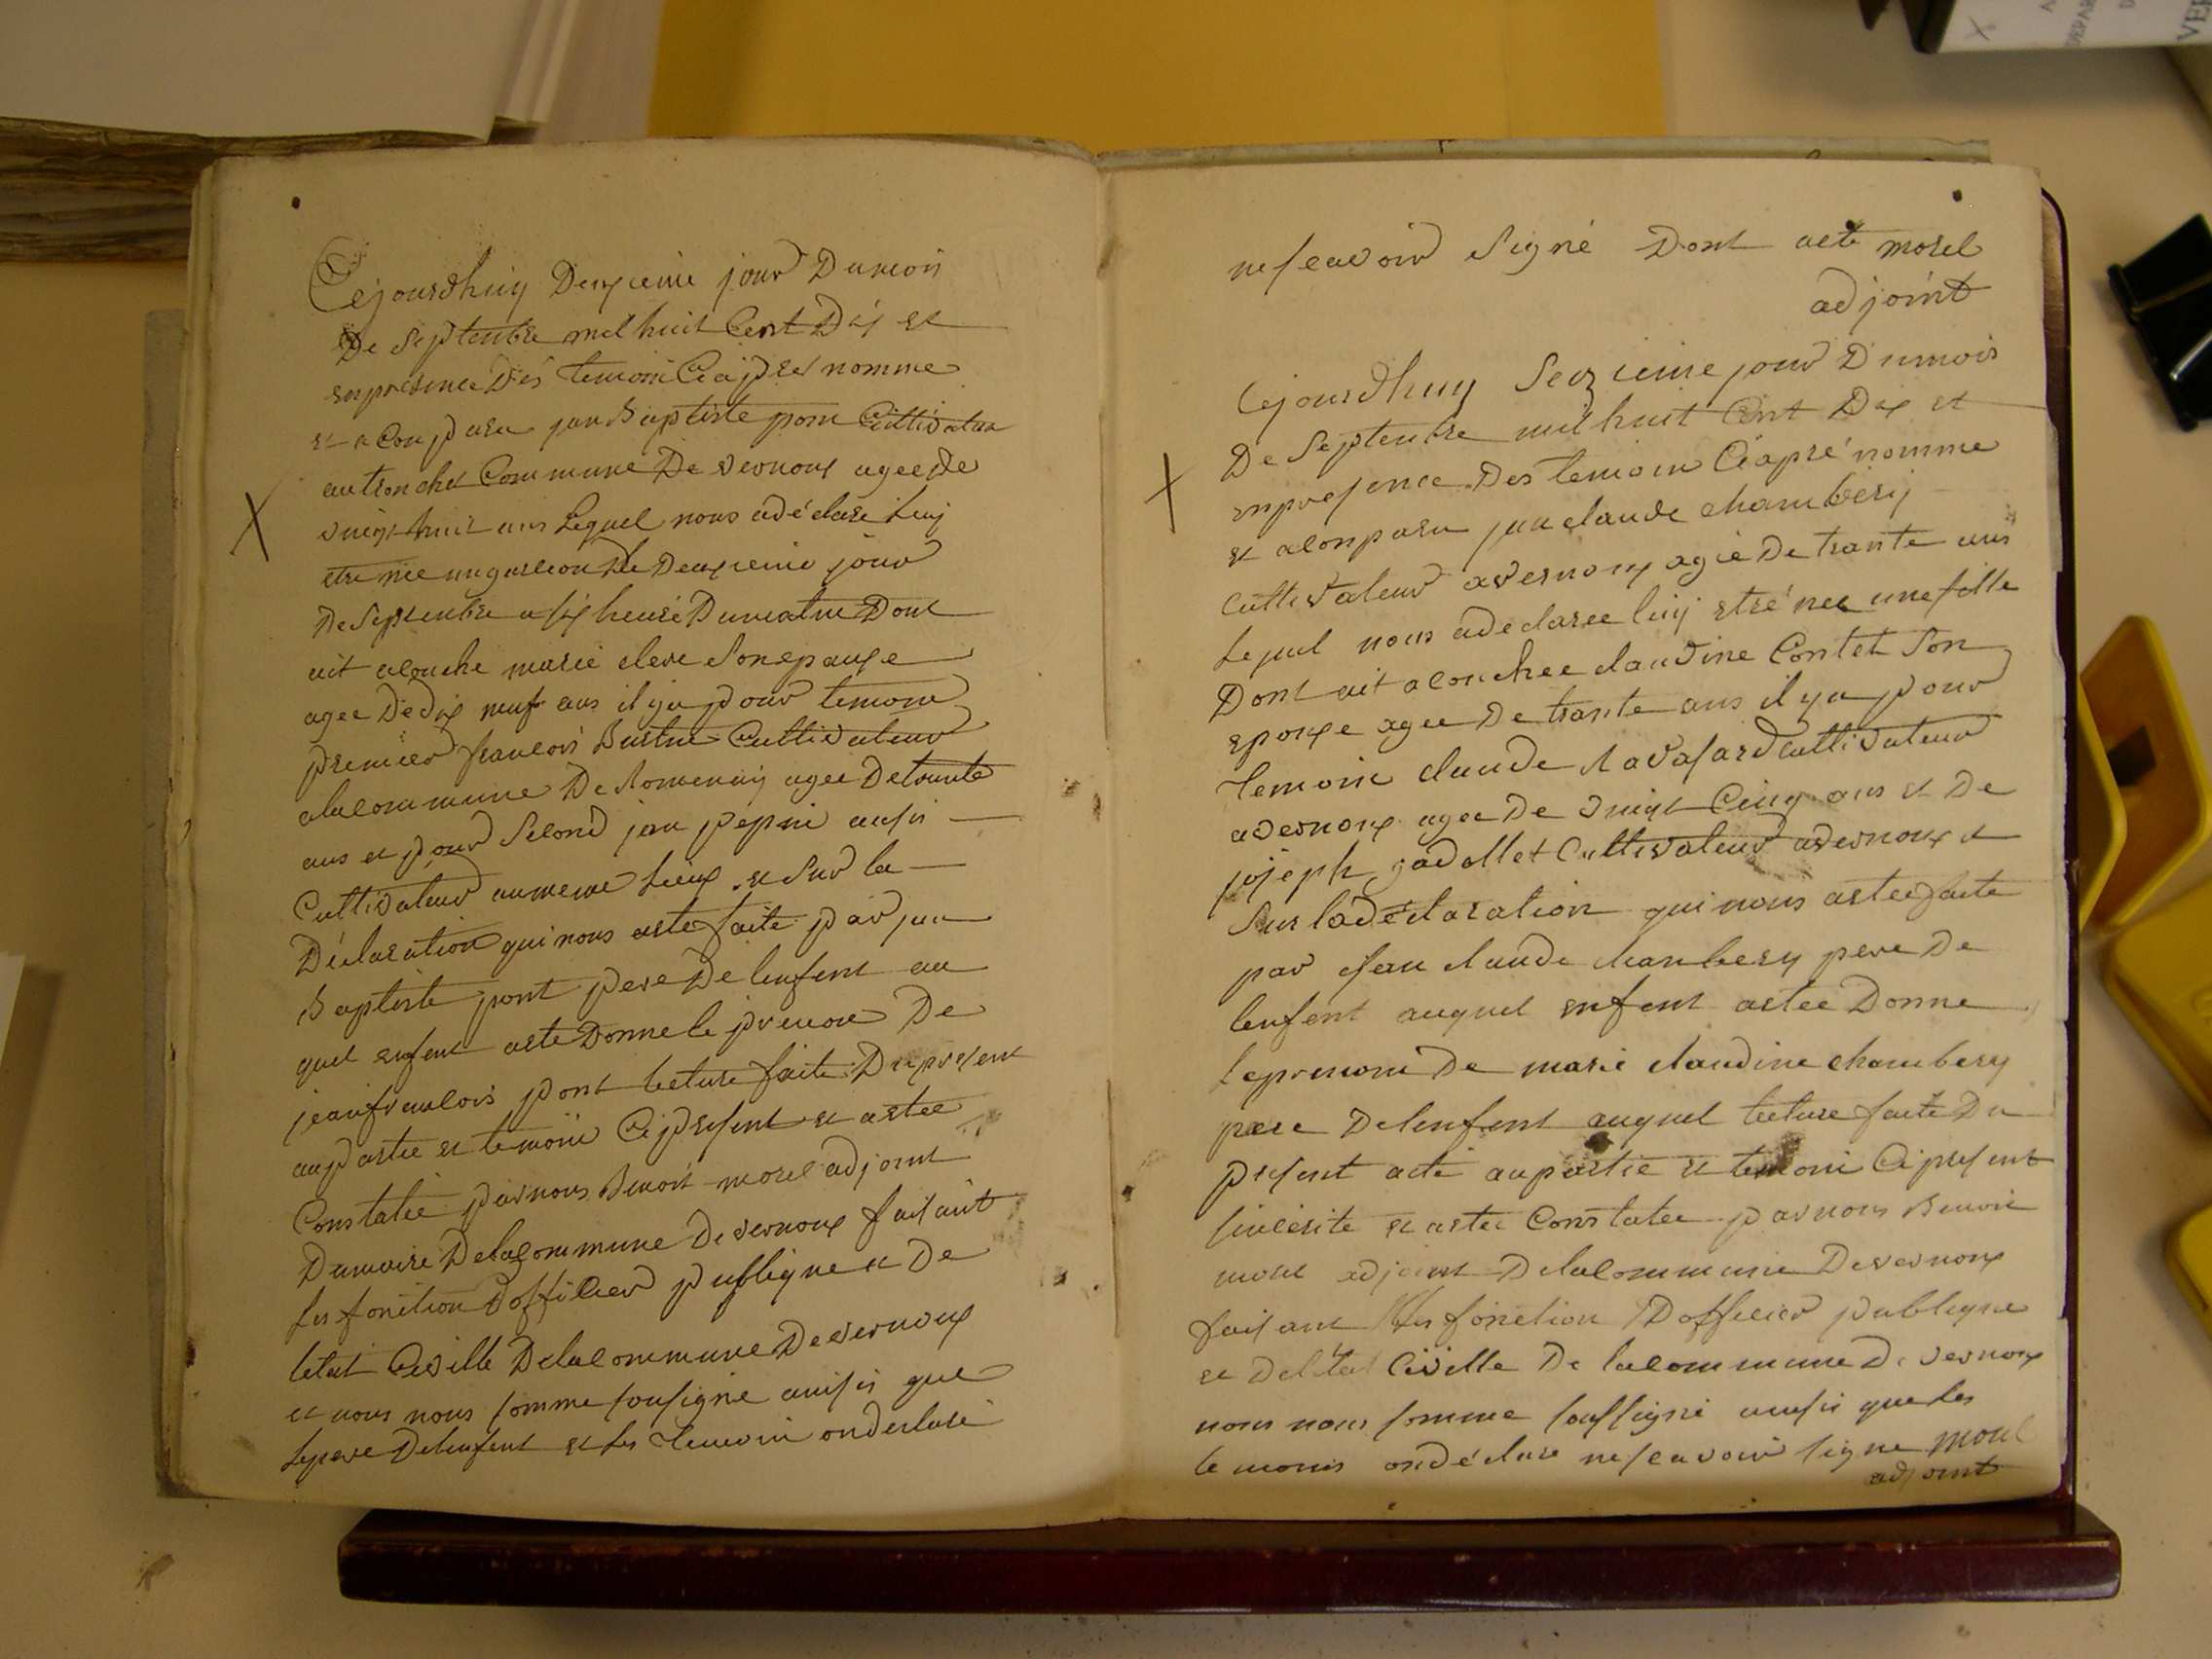 Cejourdhuy Deuxieme jour Dumois
De Septenbre mil huit Cent Dix et
enpresence Dés temoin Ciapres nomme
et a Conparu jan Baptiste pont Cultivateur
autronchet Commune De vernoux agee De
vingt huit ans Lequel nous adéclare Luy
etre nee ungarcon Le Deuxieme jour
De Septenbre a six heure Dumatin Dont
ait acouche marie clere Sonepouxe
agee Dedix neuf ans il ya pour temoin
premier francois Cultivateur
alacommune De Romenay agee Detrante
ans et pour Second jan pepin aussi
Cultivateur aumeme Lieux et Sur la
Déclaration qui nous aeste faite par jan
Baptiste pont pere De lenfent au
quel enfent aeste Donne le prenon De
jeanfrancois pont lecture faite Du present
aupartie et temoin Cipresent et aetee
Constatee parnous Benoit morel adjoint
Dumaire Delacommune Devernoux faisant
les fonction Dofficier publique et De
letat Civille Delacommune Devernoux
et nous nous somme sousigne aussi que
Lepere Delenfent et les temoin ondeclare
neseavoir Signé Dont acte morel
adjoint
Cejourdhuy Seizieme jour Dumois
De Septenbre mil huit Cent Dix et
enpresence Des temoin Ciapré nomme
et aconparu jan claude chambery
cultivateur avernoux agée De trante ans
Lequel nous adeclaree luy etré nee une fille
Dont ait acouchee claudine Contet Son
epouxe agee De trante ans il ya pour
temoin claude Ravasard cultivateur
avernoux agee De vingt Cinq ans et De
joseph gadollet Cultivateur avernoux et
Sur ladéclaration qui nous aetee faite
par Jean claude chanbery pere De
lenfent auquel enfent aetee Donne
Leprenom De marie claudine chambery
pere Delenfent auquel lecture faite Du
present acte aupartie et temoin Cipresent
sincerite et aetee Constatee parnous Benoit
morel adjoint Delacommune Devernoux
faisant les fonction Dofficier publique
et Deletat Civille De lacommune De vernoux
nous nous somme soussigné aussi que les
temoins ondéclare neseavoir signe morel
adjoint
X
X